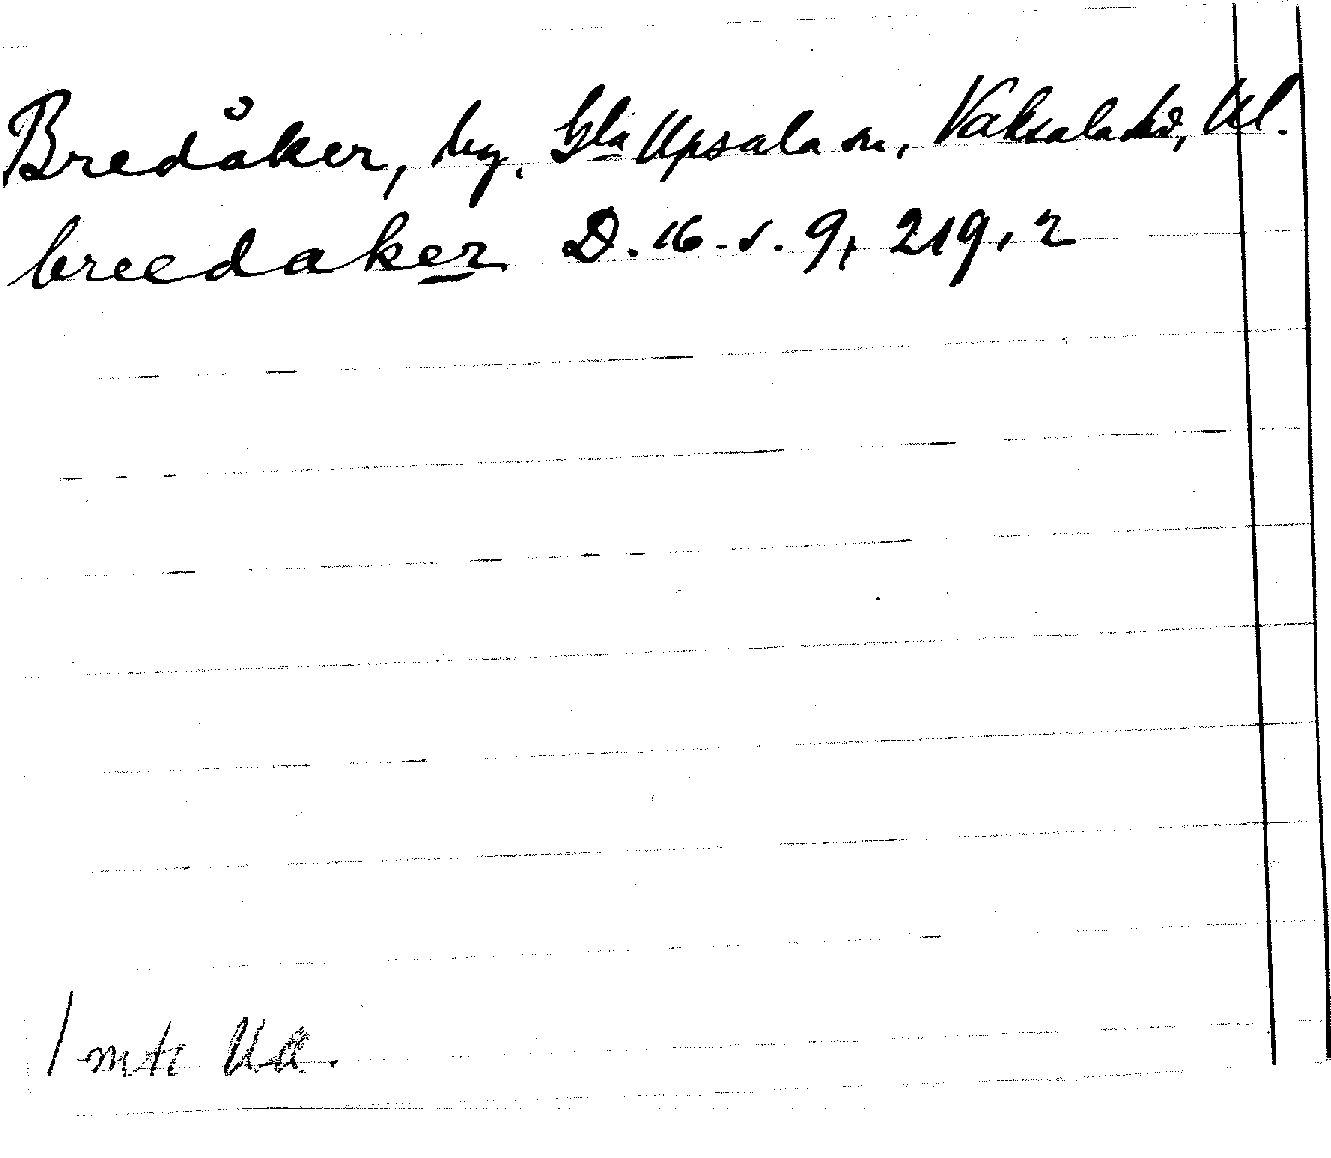 Bredåker, by, Gla Upsala sn, Vaksala hd, Upl.
breedaker D. 16. s. 9, 219, 2